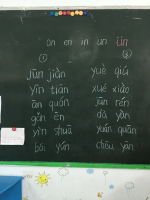 an en in un ün
① ②
jūn jiàn yuè qiú
yīn tiān xué xiào
ān quán jūn rén
gǎn ēn dà yàn
yìn shuā yuán quān
bái yún chōu yān